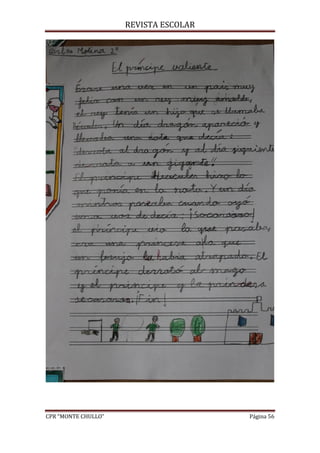 REVISTA ESCOLAR
Molina 2º
El príncipe valiente
Érase una vez en un país muy
feliz con un rey muy amable,
el rey tenía un hijo que se llamaba
Un día dragón apareció y
llevaba una nota que decía:
derrota al dragón y al día siguiente
mata a un gigante!!
El príncipe Hercules hizo lo
que ponía en la nota. Y un día
mientras paseaba cuando oyó
una voz decía: ¡Socorrooo!
el príncipe vio lo que pasaba,
era una princesa a la que
un brujo la había atrapado. El
príncipe derrotó al mago
y el príncipe y la princesa
se casaron. ¡Fin!
CPR "MONTE CHULLO"
Página 56